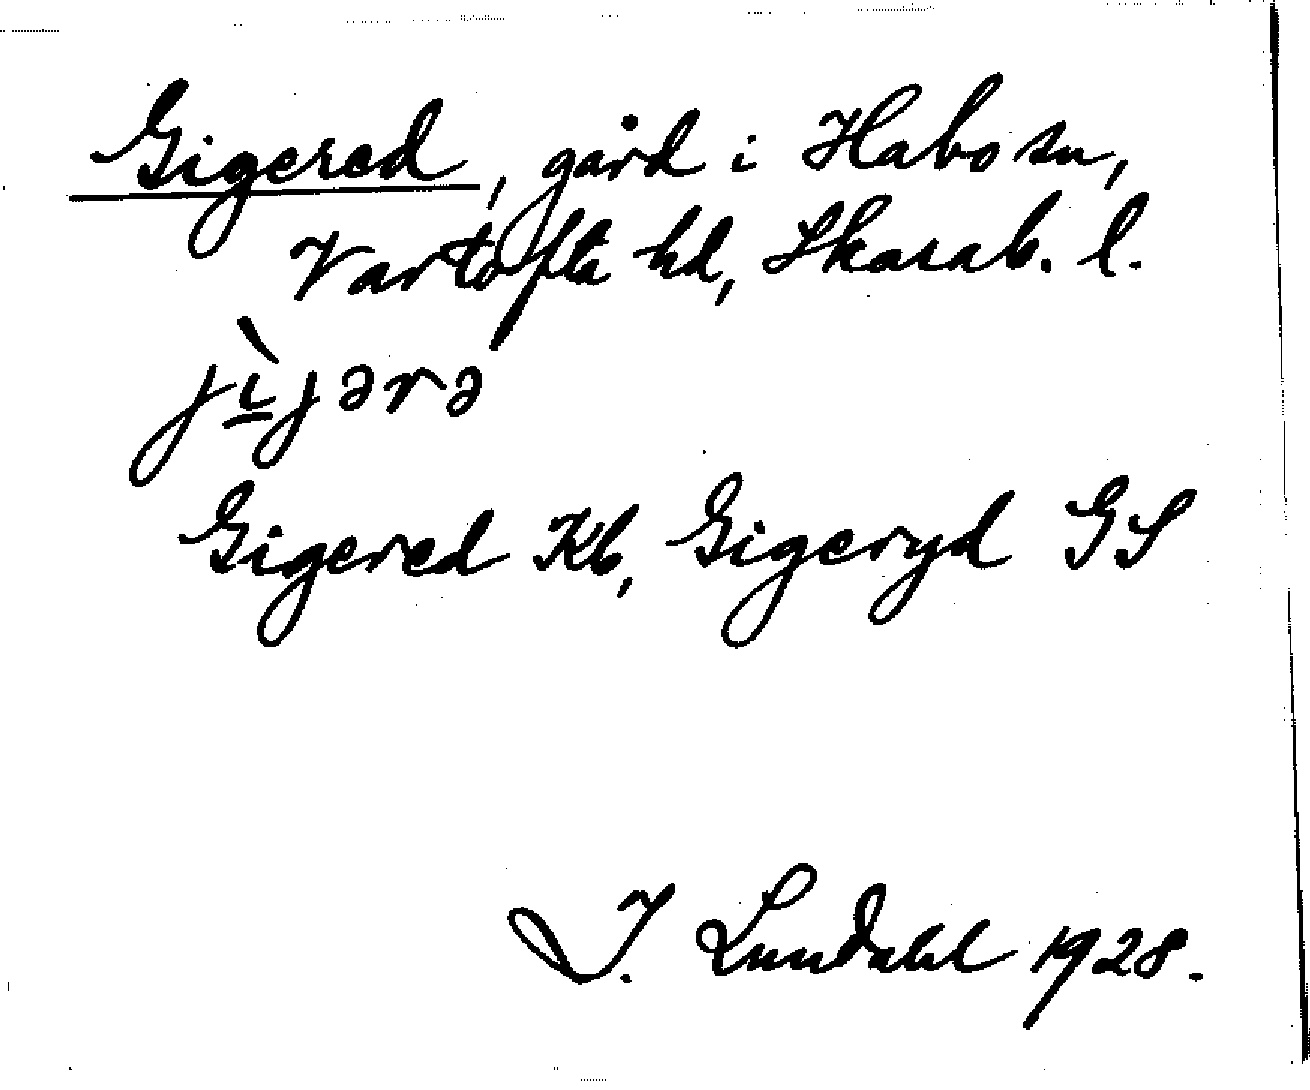 Gigered, gård i Habo sn,
Vartofta hd, Skarab. l.
jì̱jərə
Gigered Kb, Gigeryd GS
I. Lundahl 1928.